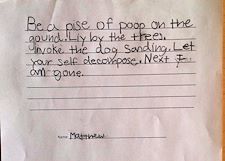 Be a pise of poop on the
gound. Liy by the trees.
Unvoke the dog Sanding. Let
your self decompose. Next I
am gone.
Name Matthew